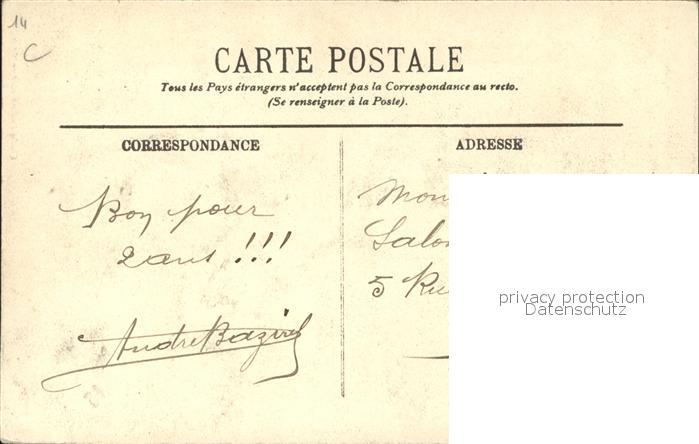 14
C
CARTE POSTALE
Tous les Pays étrangers n'acceptent pas la Correspondance au recto.
(Se renseigner à la Poste).
CORRESPONDANCE
ADRESSE
Bon pour
2 ans !!!
André
Mon
Salo
5 Ru
privacy protection
Datenschutz